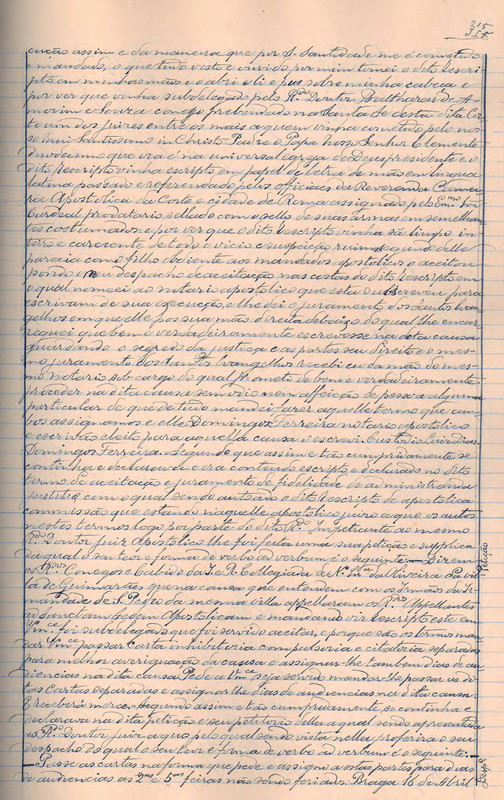 215
cução assim e da maneira que por S. Santidade me é comettido
e mandado, o que tudo visto e ouvido por mim tomei o dito rescri-
pto em minhas mãos e o abri e li e puz sobre minha cabeça e
por ver que vinha subdelegado pelo R.do Doutor Balthazar de A-
morim e Souza conego prebendado na Santa Sé desta dita Cor-
te um dos juizes entre os mais a quem vinha cometido pelo nos-
so mui Santissimo in Christo Padre o Papa nosso Senhor Clemente
duodecimo que ora é na universal egreja de Deus presidente e o
dito rescripto vinha escripto em papel de letra de mão em lingua
latina passado e referendado pelos officiaes da Reverenda Came-
ra Apostolica da Corte e cidade de Roma assignado pelo Em.mo Snr
Cardeal prodatario sellado com o sello de suas armas em semelhan-
tes costumado e por ver que o dito rescripto vinha são limpo in-
teiro e carecente de todo o vicio e suspeição ruim segundo delle
parecia como filho obediente aos mandados apostolicos o aceitou
pondo o meu despacho de aceitação nas costas do dito rescripto em
o qual nomeei ao notario apostolico que esta subscreveu para
escrivam de sua execução e lhe dei o juramento dos Santos Evan-
gelhos em que elle poz sua mão direita debaixo do qual lhe encar-
reguei que bem e verdadeiramente escrevesse na dita causa
guardando o segredo da justiça e as partes seu direito e o mes-
mo juramento dos Santos Evangelhos recebi eu da mão do mes-
mo notario sob cargo do qual prometi de bem e verdadeiramente
proceder na dita causa sem odio nem affeição de pessoa alguma
particular de que de tudo mandei fazer aquelle termo que am-
bos assignamos e elle Domingos Ferreira notario apostolico
e escrivão eleito para aquella causa o escrevi. Custodio Luiz Dias.
Domingos Ferreira. Segundo que assim e tão cumpridamente se
continha e declarava e era conteudo escripto e declarado no dito
termo de aceitação e juramento de fidelidade de administranda
justitia com o qual sendo autoado o dito rescripto de apostolica
commissão que estando naquelle apostolico juizo a que os autos
nestes termos logo por parte do dito R.do Impetrante ao mesmo
R.do Doutor juiz Apostolico lhe foi feita uma sua petição e supplica
da qual o seu teor e forma de verbo ad verbum é o seguinte: — Dizem
os R.dos Conegos e Cabido da I. e R. Collegiada de N. Snr.a da Oliveira da vil-
la de Guimarães que na causa que entendem com os Irmãos da Ir-
mandade de S. Pedro da mesma villa appellaram os R.dos Appellentes
ad Sanctam Sedem Apostolicam e mandando vir rescripto este em
V.m.ce foi subdelegado que foi servido aceitar, e porque são os termos man-
dar V.m. passar carta inhibitoria compulsoria e citatoria separadas
para melhor averiguação da causa e assignar-lhe tambem dias de au-
diencias na dita causa. Pede a V.m. seja servido mandar-lhe passar as di-
tas cartas separadas e assignar-lhe dias de audiencias na dita causa.
E receberá mercê. Segundo assim e tão cumpridamente se continha e
declarava na dita petição e seu petitorio della a qual sendo apresentada
ao R.do doutor juiz a que pelo qual sendo vista nella proferira o seu
despacho do qual o seu teor e forma de verbo ad verbum é o seguinte: —
— Passe as cartas na forma que pede e assigno a estas partes para dias
de audiencias as 2.as e 5.as feiras não sendo feriados. Braga 16 de Abril
Petição
Desp.o